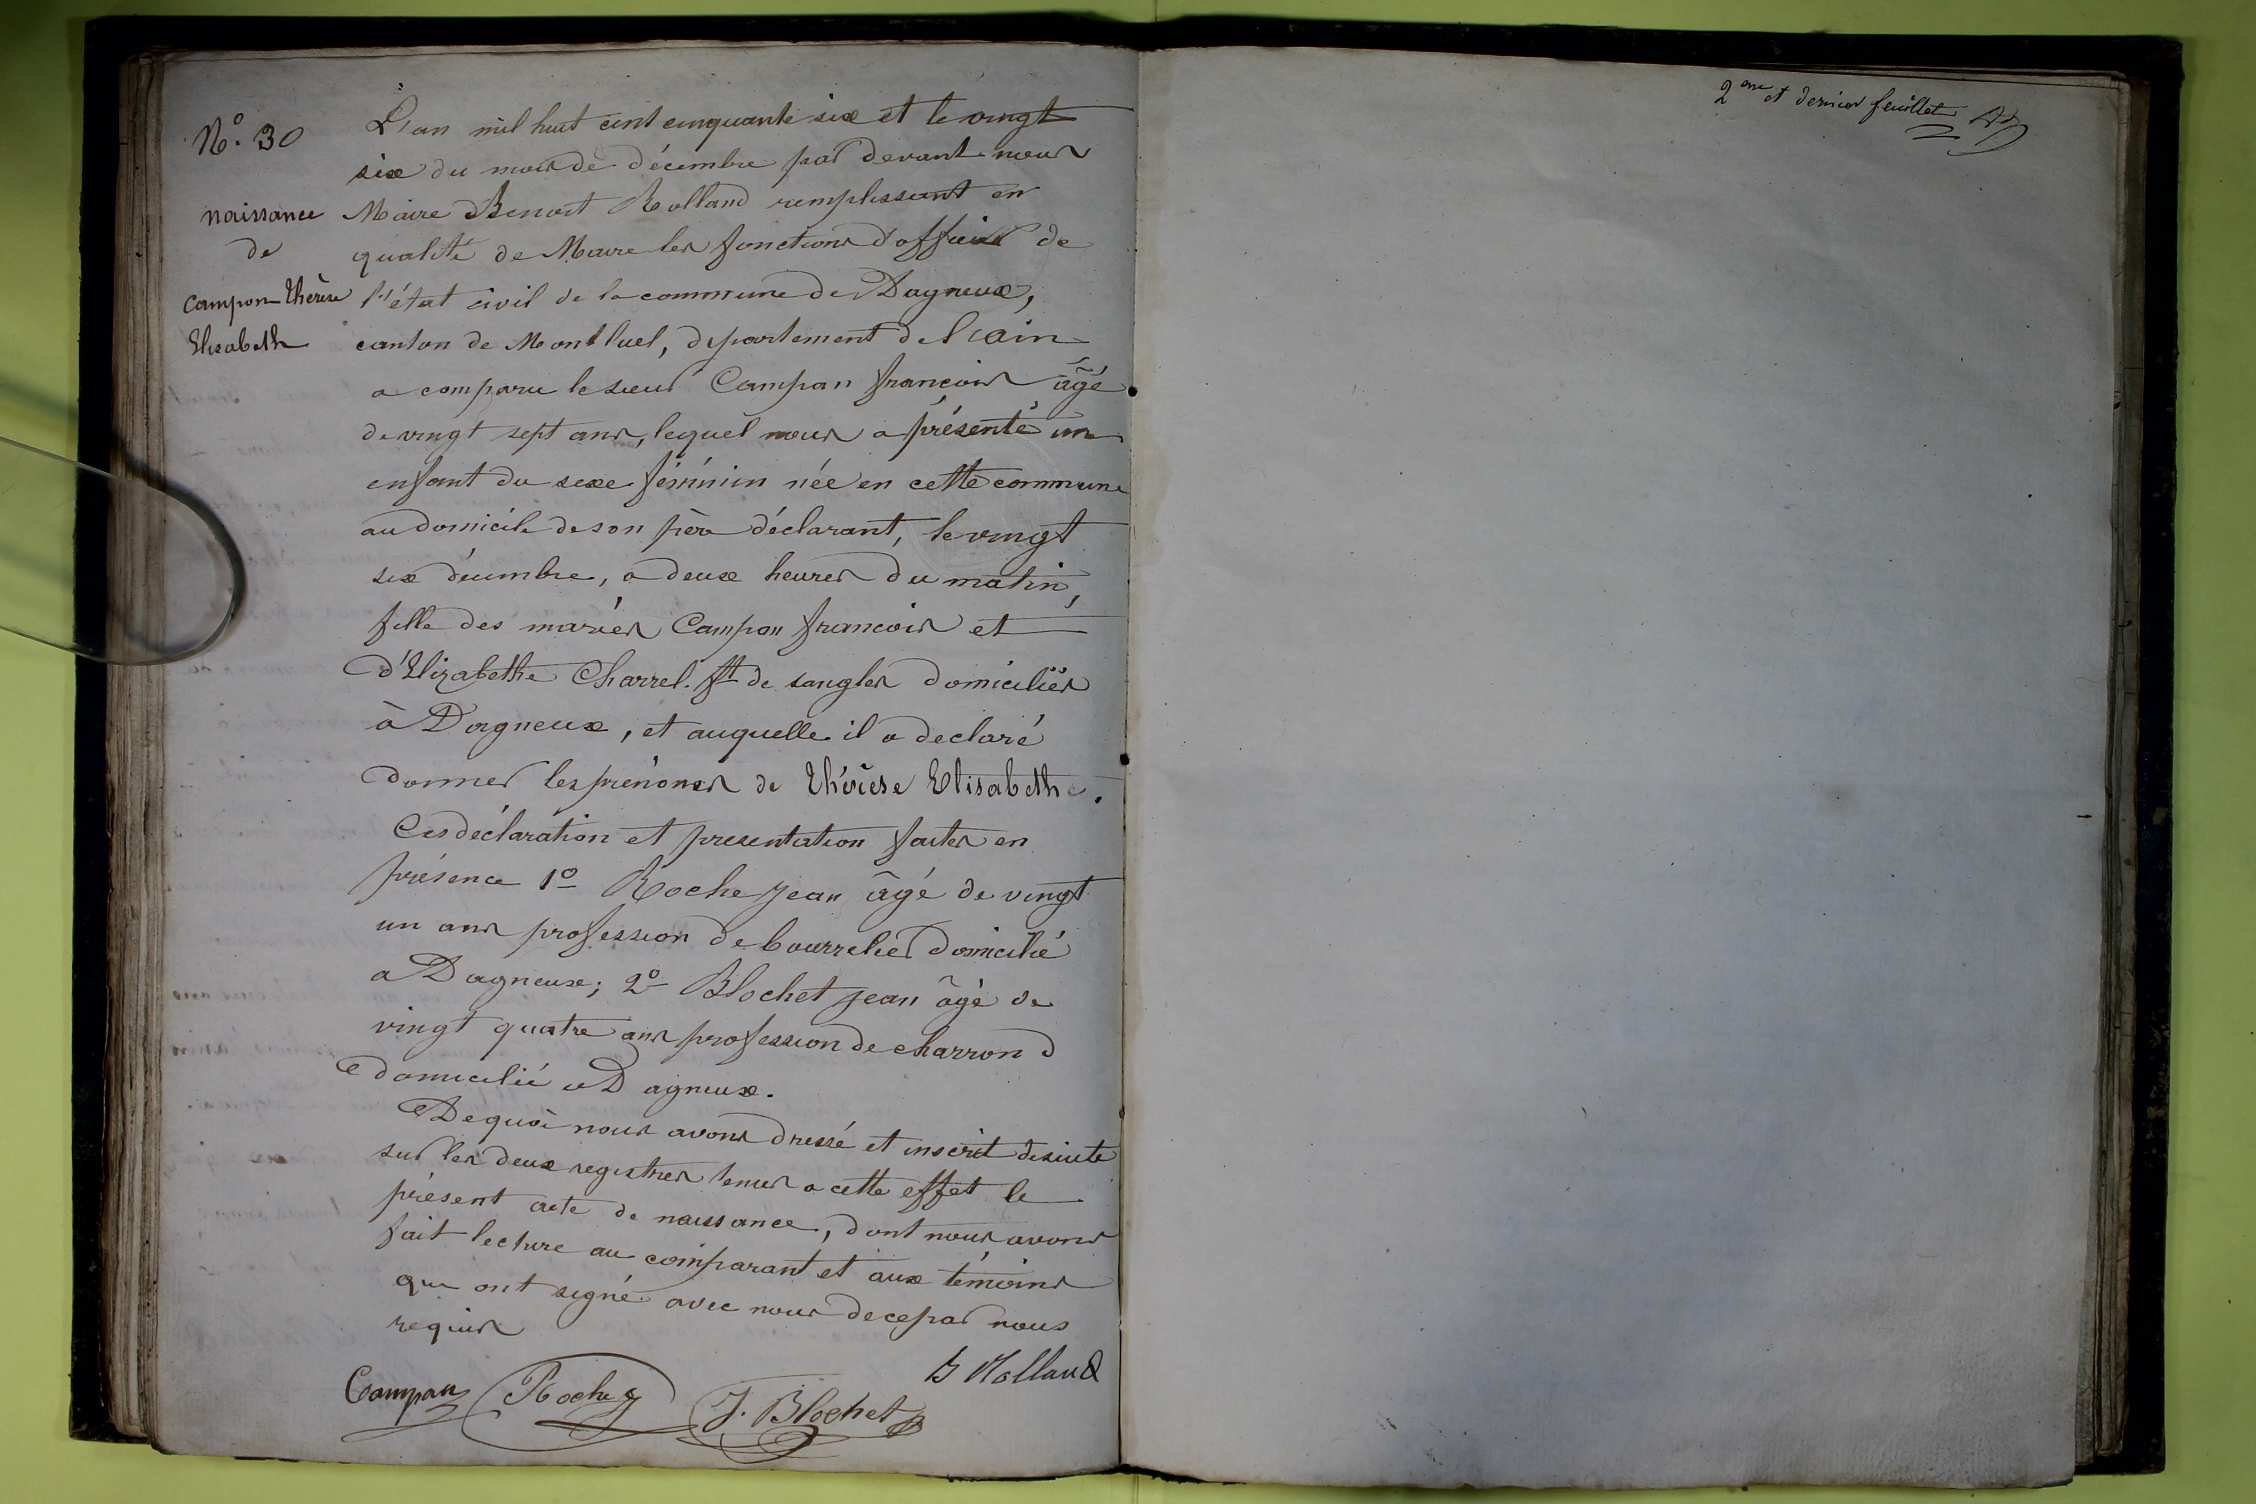 N.° 30
naissance
de
Campon thérèse
Elisabeth
L'an mil huit cent cinquante six et le vingt
six du mois de décembre par devant nous
Maire Benoit Rolland remplissant en
qualité de Maire les fonctions d'officier de
l'état civil de la commune de Dagneux,
canton de Montluel, département de l'ain
a comparu le sieur Campan françois âgé
de vingt sept ans, lequel nous a présenté un
enfant du sexe féminin née en cette commune
au domicile de son père déclarant, le vingt
six décembre, a deux heures du matin,
fille des mariés Campon francois et
d'Elizabethe Charrel. ft de sangles domiciliés
à Dagneux, et auquelle il a declaré
donner les prénoms de thérèse Elisabethe.
Ces déclaration et presentation faites en
présence 1° Roche jean âgé de vingt
un ans profession de bourrelier domicilié
a Dagneux; 2° Blochet jean âgé de
vingt quatre ans profession de charron d
domicilié a Dagneux.
De quoi nous avons dressé et inscrit desuite
sur les deux registres tenus a cette effet le
présent acte de naissance, dont nous avons
fait lecture au comparant et aux témoins
qui ont signé avec nous de ce par nous
requis
B Rolland
Campan Roche J. Blochet
2eme et dernier feuillet